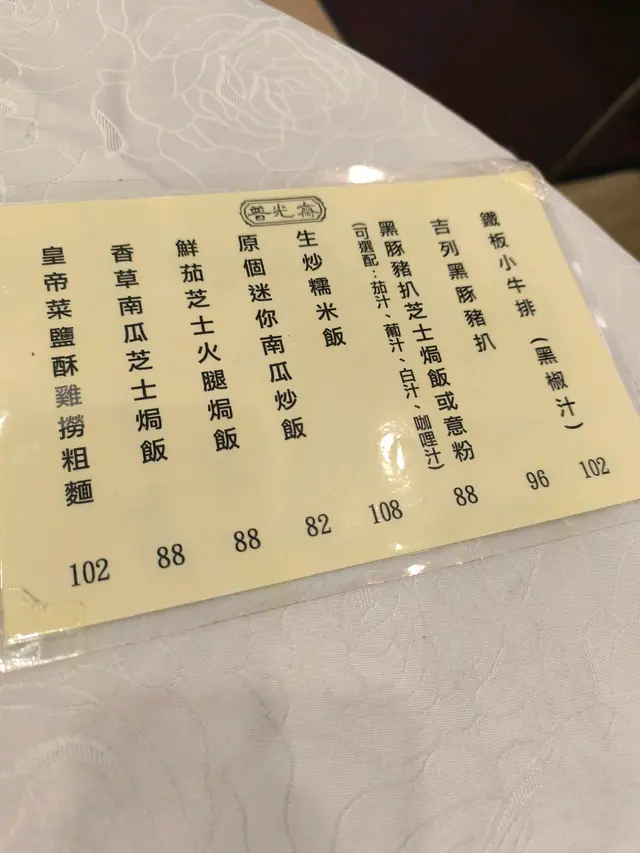 普光齋
鐵板小牛排 (黑椒汁) 102
吉列黑豚豬扒 96
黑豚豬扒芝士焗飯或意粉 88
(可選配：茄汁、葡汁、白汁、咖哩汁)
生炒糯米飯 108
原個迷你南瓜炒飯 82
鮮茄芝士火腿焗飯 88
香草南瓜芝士焗飯 88
皇帝菜鹽酥雞撈粗麵 102